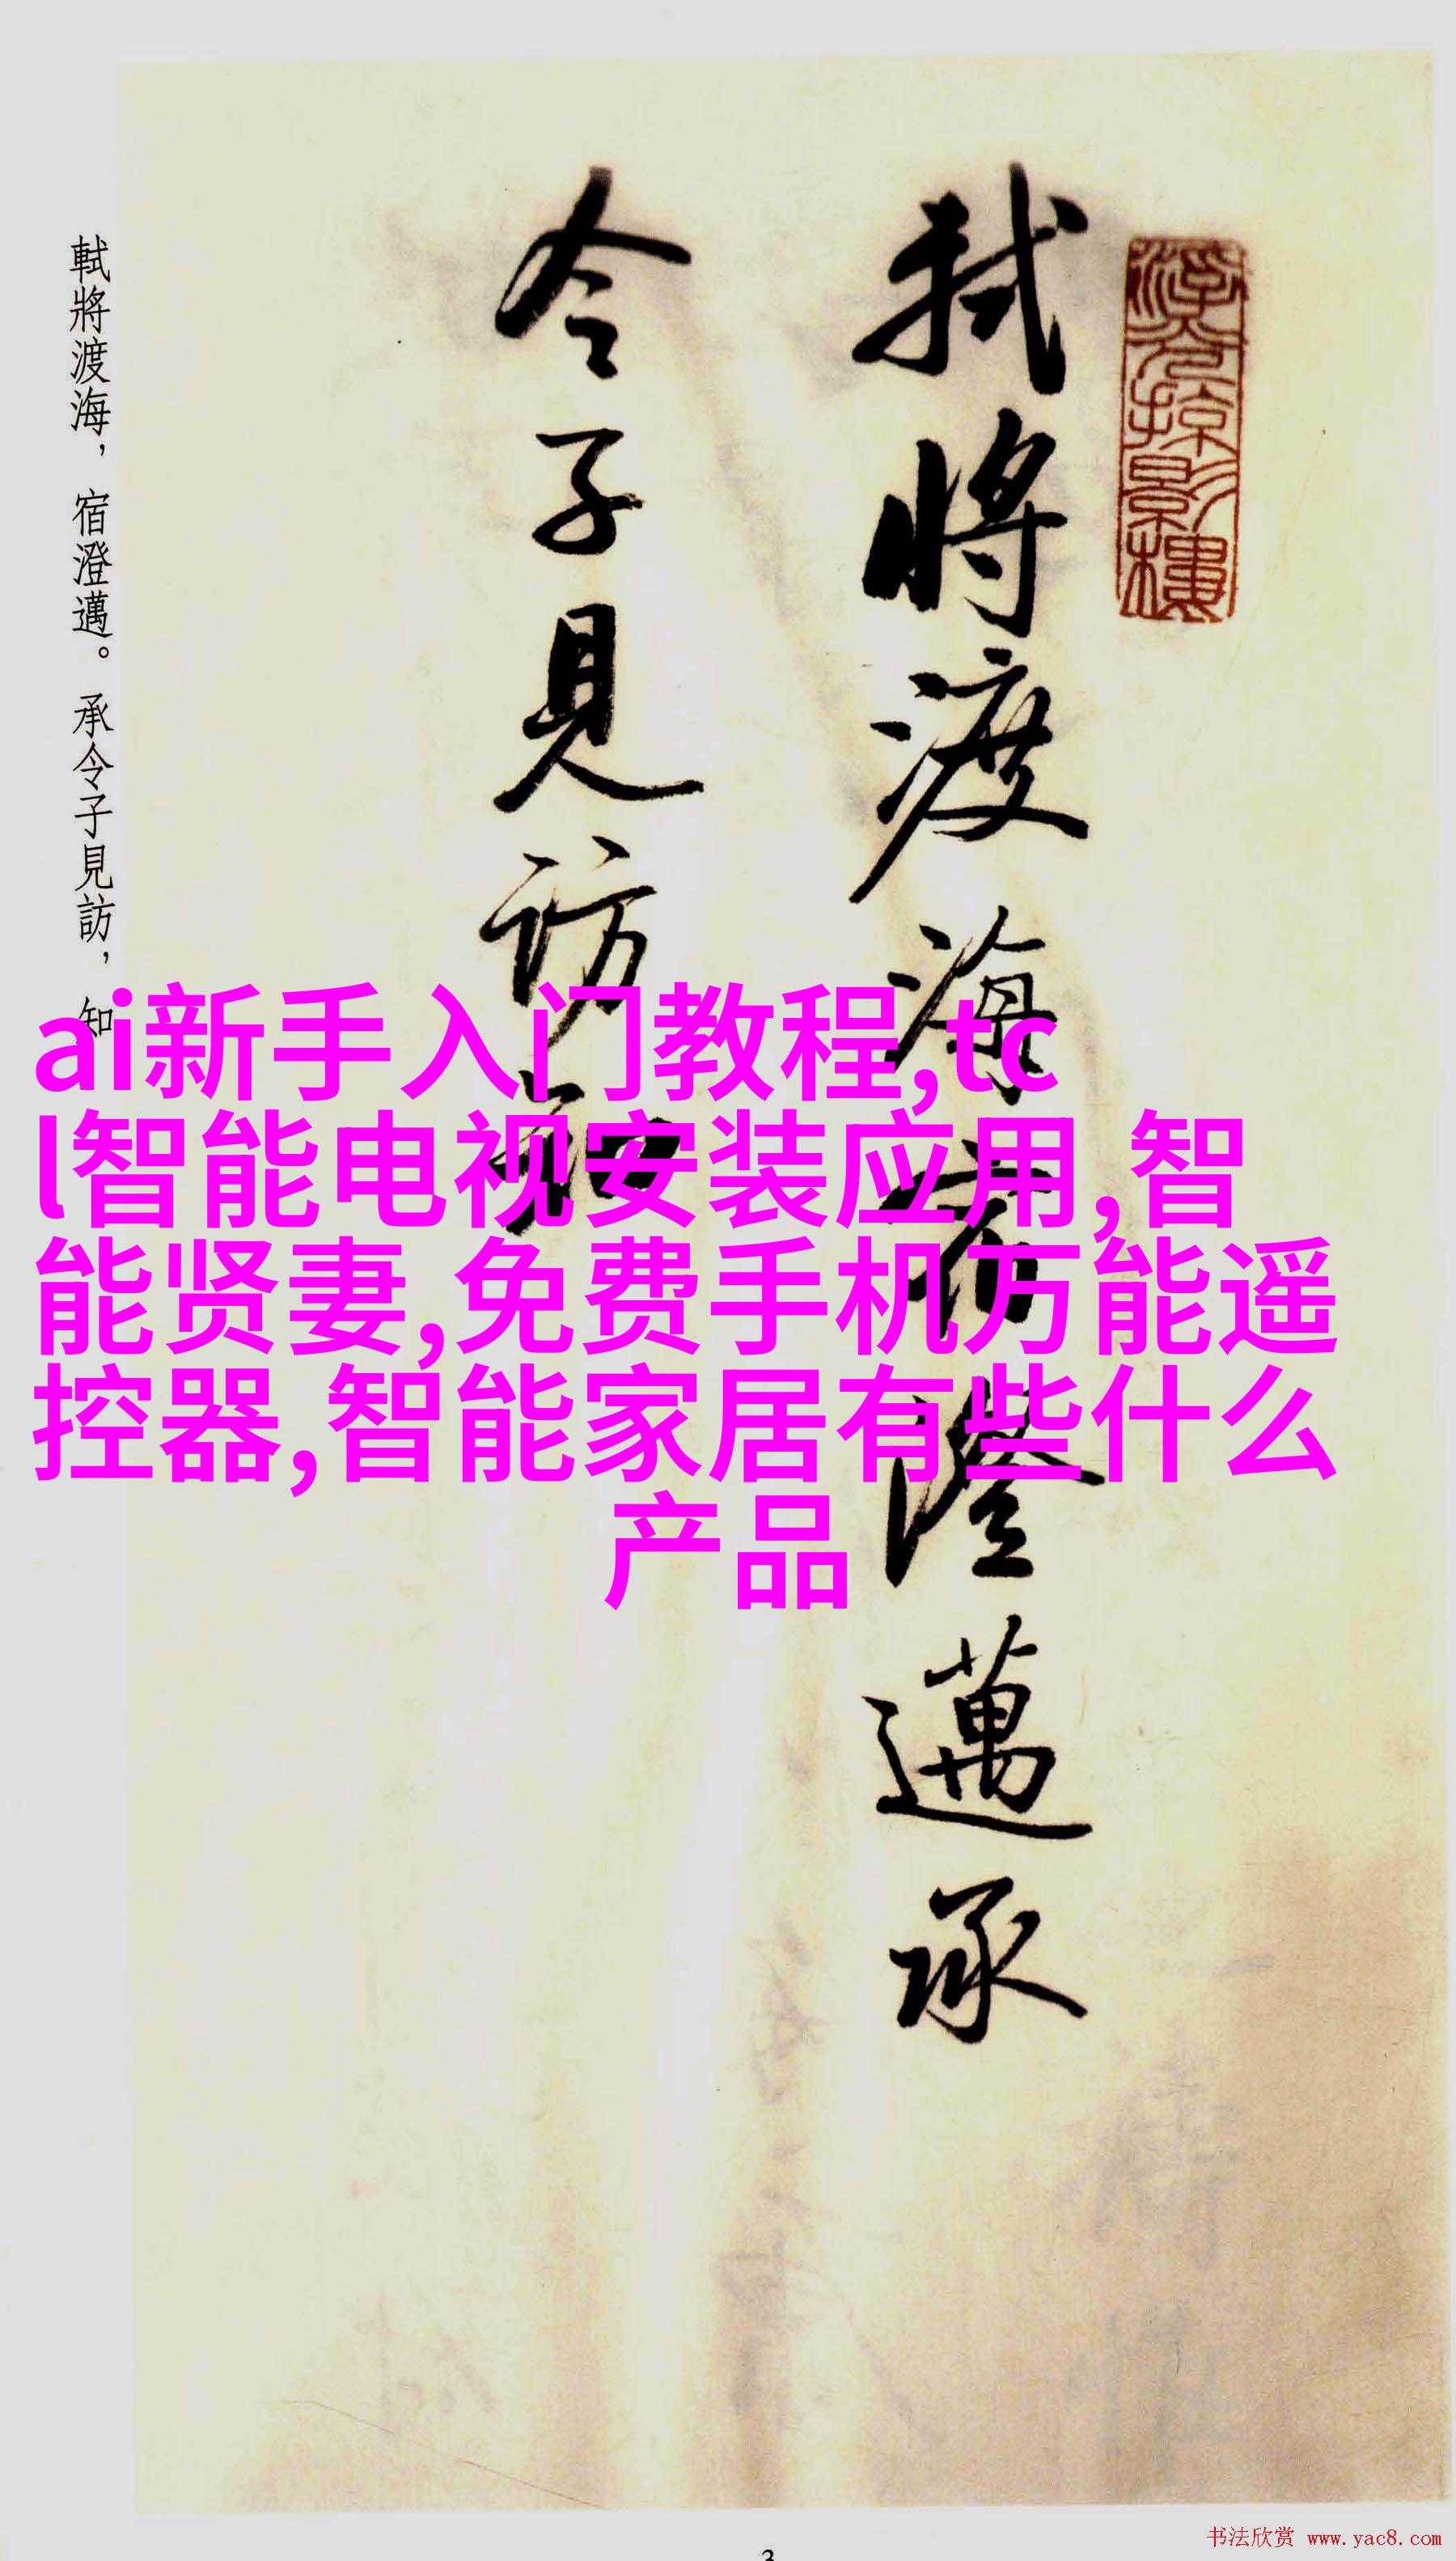 軾將渡海宿澄邁承
令子見訪知
軾將渡海，宿澄邁。承令子見訪，知
ai新手入门教程,tc
l智能电视安装应用,智
能贤妻,免费手机万能遥
控器,智能家居有些什么
产品
书法欣赏 www.yac8.com
3